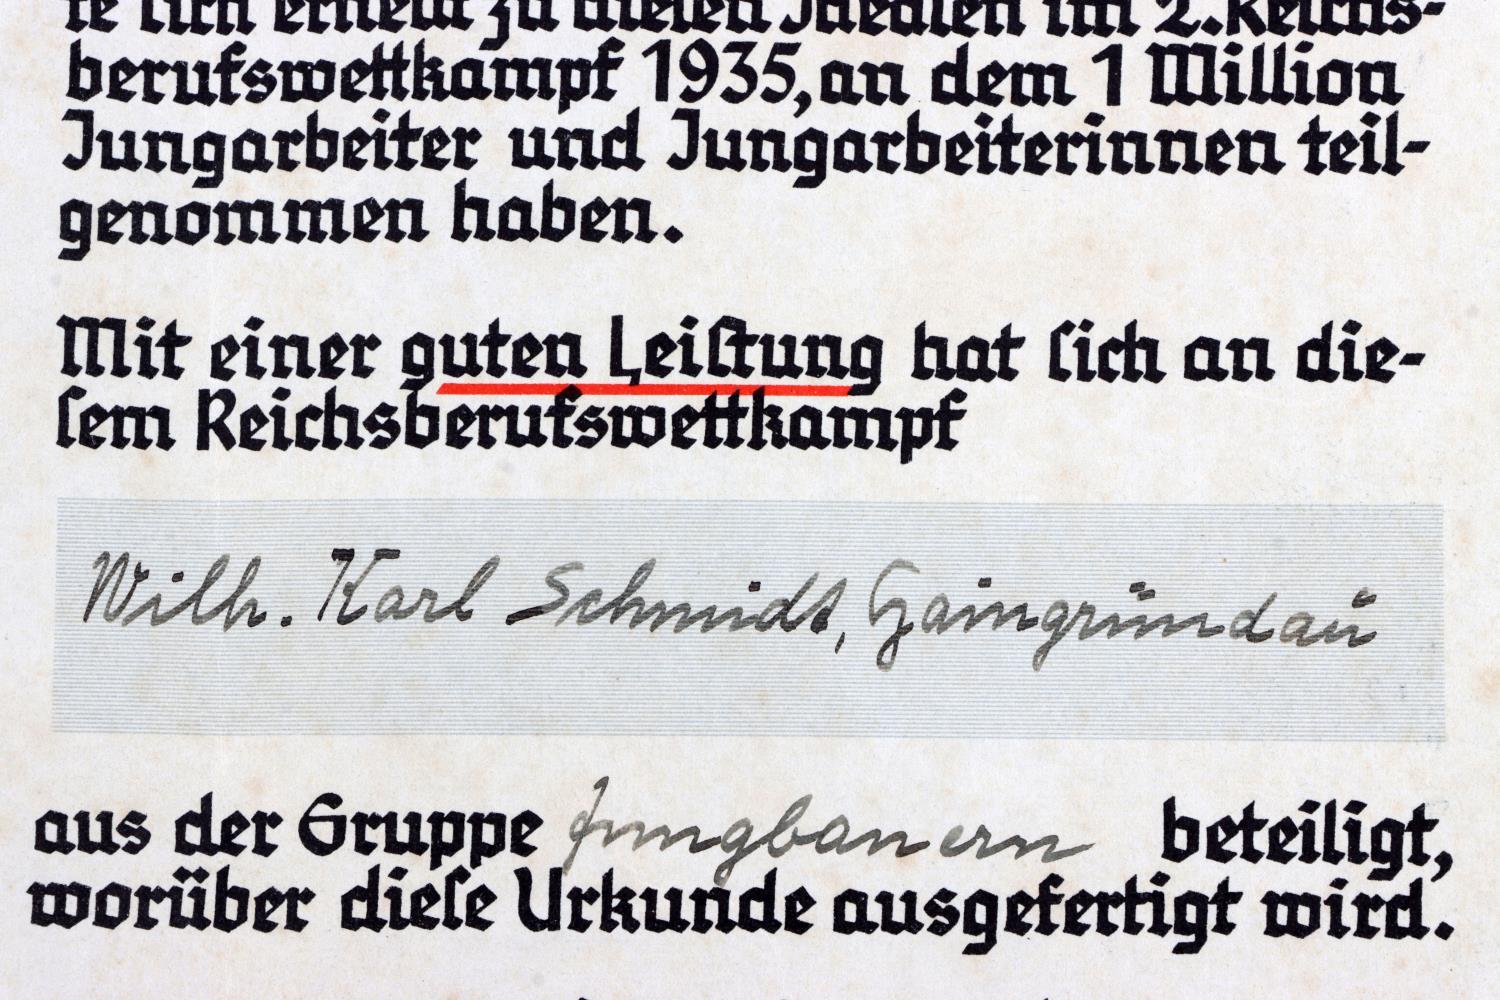 te sich erneut zu diesen Idealen im 2. Reichs-
berufswettkampf 1935, an dem 1 Million
Jungarbeiter und Jungarbeiterinnen teil-
genommen haben.
Mit einer guten Leistung hat sich an die-
sem Reichsberufswettkampf
Wilh. Karl Schmidt, Haingründau
aus der Gruppe Jungbauern beteiligt,
worüber diese Urkunde ausgefertigt wird.